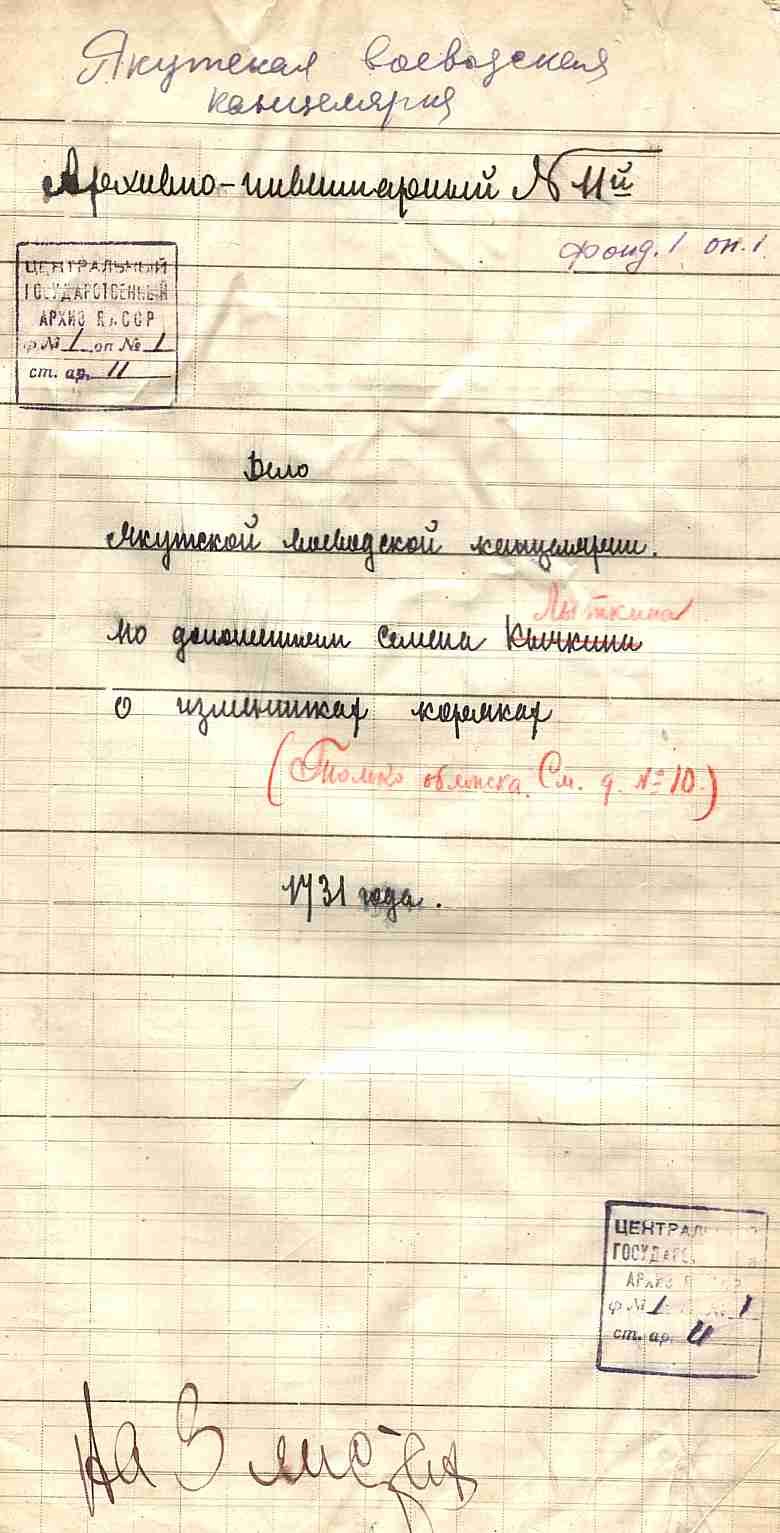 Якутская воеводская
канцелярия
Архивно-инвентарный № 11й
фонд. 1 оп. 1
ЦЕНТРАЛЬНЫЙ
ГОСУДАРСТВЕННЫЙ
АРХИВ ЯАССР
ф № 1 оп № 1
ст. ар. 11
Дело
Якутской воеводской канцелярии.
Лыткина
по доношениям Семена Кычкина
о изменниках коряках
(Только обложка. См. д. № 10.)
1731 года.
ЦЕНТРАЛЬНЫЙ
ГОСУДАРС
АРХИВ
ф № 1 1
ст. ар. 11
На 3 листах